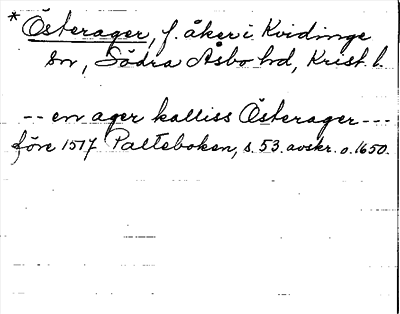 * Österager, f. åker i Kvidinge
sn, Södra Åsbo hd, Krist. l.
-- en ager kalliss Österager ---
före 1517 Palteboken, s. 53. avskr. o. 1650.